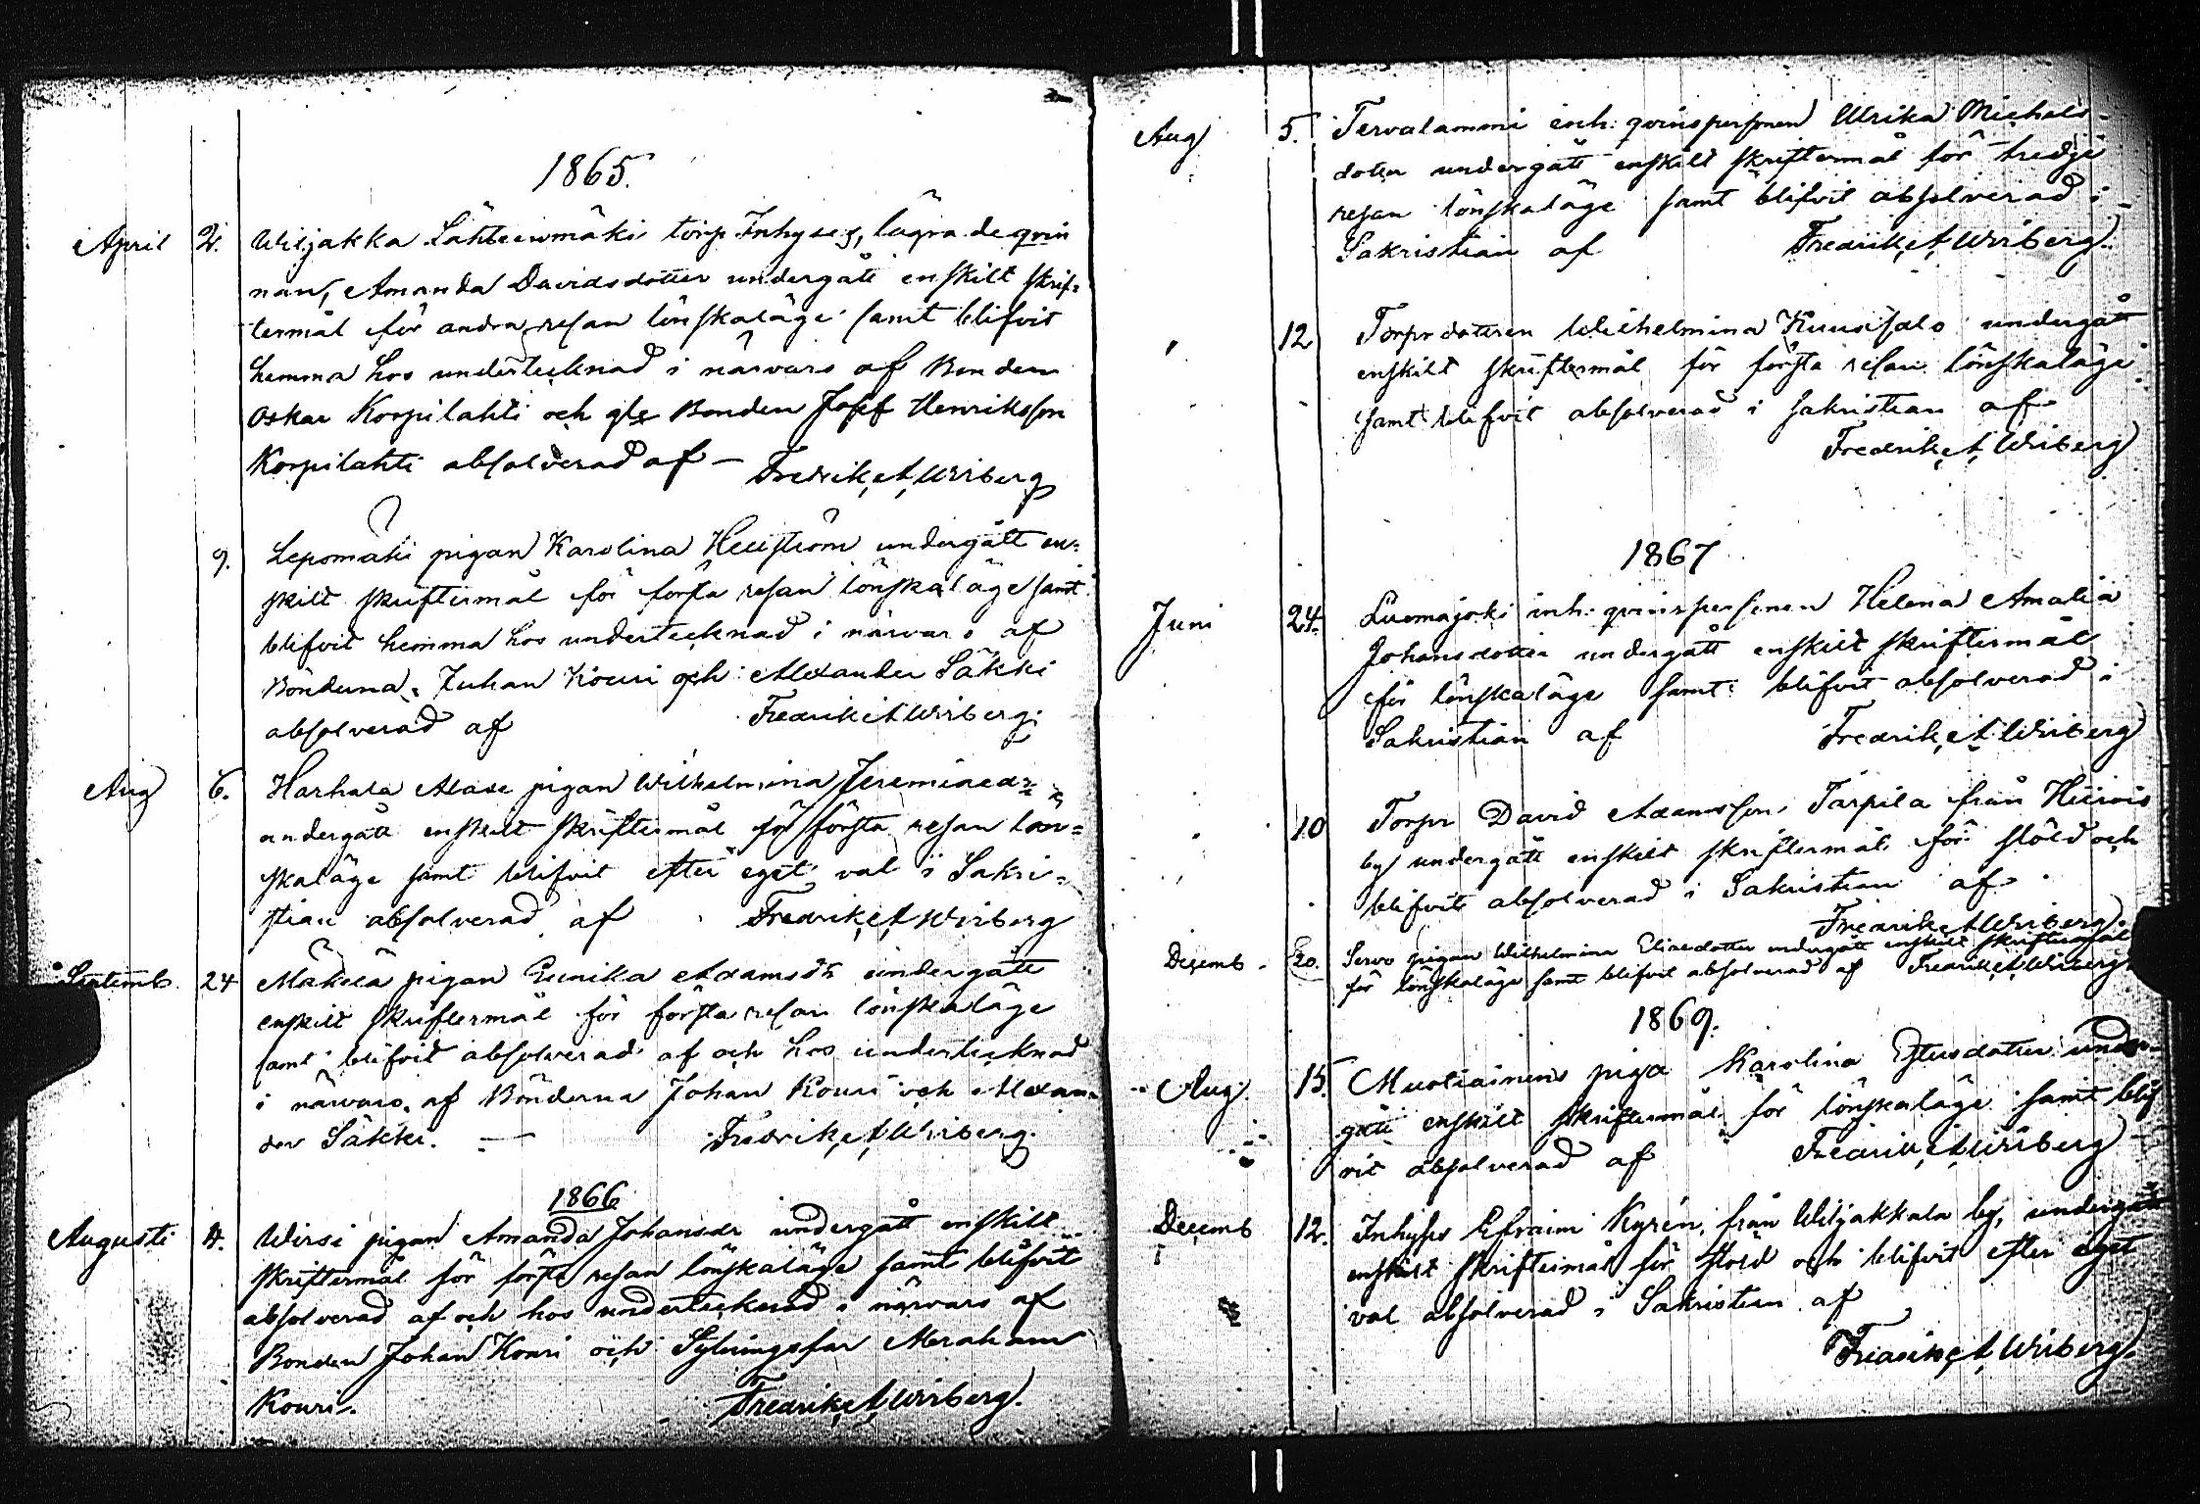 1865.
April 2. Wiljakka Lähteenmäki torp Inhyses, lägrade qvin
nan, Amanda Davidsdotter undergått enskilt skrif=
termål för andra resan lönskaläge samt blifvit
hemma hos undertecknad i närvaro af Bonden
Oskar Korpilahti och gle Bonden Josef Henriksson
Korpilahti absolverad af – Fredrik A Wiberg
9. Lepomäki pigan Karolina Hellström undergått en=
skilt skriftermål för första resan lönskaläge samt
blifvit hemma hos undertecknad i närvaro af
Bönderna, Juhan Kouri och Alexander Säkki
absolverad af Fredrik A Wiberg.
Aug 6. Harhala Alase pigan Wilhelmina Jeremiaed:r
undergått enskilt skriftermål för första resan lön=
skaläge samt blifvit efter eget val i Sakri=
stian absolverad af Fredrik A Wiberg
Septemb. 24 Mäkelä pigan Eunika Adamsdr undergått
enskilt skriftermål för första resan lönskaläge
samt blifvit absolverad af och hos undertecknad
i närvaro af Bönderna Johan Kouri och Alexan=
der Säkki. — Fredrik A Wiberg.
1866
Augusti 4. Wirsi pigan Amanda Johansdr undergått enskilt
skriftermål för första resan lönskaläge samt blifvit
absolverad af och hos undertecknad i närvaro af
Bonden Johan Kouri och Sytningsfar Abraham
Kouri. Fredrik A Wiberg.
Aug 5. Tervalammi inh: qvinspersonen Ulrika Michels-
dotter undergått enskilt skriftermål för tredje
resan lönskaläge samt blifvit absolverad i
Sakristian af Fredrik A Wiberg.
12 Torpr dottren Wilhelmina Kuusisalo undergått
enskilt skriftermål för första resan lönskaläge
samt blifvit absolverad i sakristian af
Fredrik A Wiberg
1867
Juni 24. Luomajoki inh: qvinspersonen Helena Amalia
Johansdotter undergått enskilt skriftermål
för lönskaläge samt blifvit absolverad i
Sakristian af Fredrik A Wiberg
10 Torpr David Adamsson Tarpila från
by undergått enskilt skriftermål för stöld och
blifvit absolverad i Sakristian af
Fredrik A Wiberg.
Dezemb. 20. Servo pigan Wilhelmina Eliaedotter undergått enskilt skriftermål
för lönskaläge samt blifvit absolverad af Fredrik A Wiberg.
1869.
Aug. 15. piga Karolina under-
gått enskilt skriftermål för lönskaläge samt blif
vit absolverad af Fredrik A Wiberg
Decemb 12. Inhyses Efraim Kyrén, från Wiljakkala by, undergått
enskilt skriftermål för stöld och blifvit efter eget
val absolverad i Sakristian af
Fredrik A Wiberg.